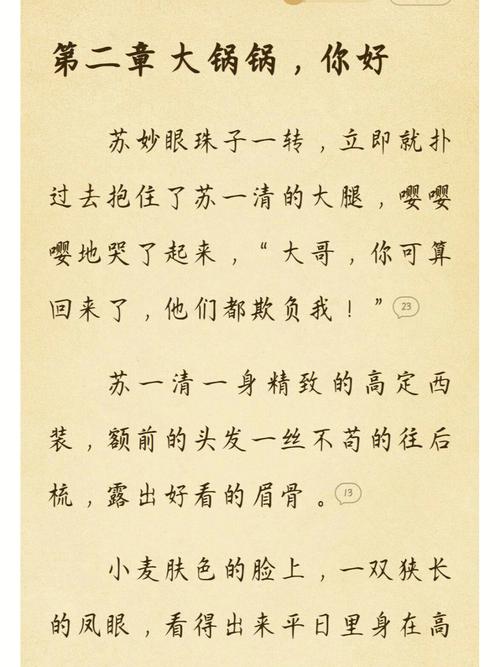 第二章 大锅锅，你好
苏妙眼珠子一转，立即就扑
过去抱住了苏一清的大腿，嘤嘤
嘤地哭了起来，“大哥，你可算
回来了，他们都欺负我！”23
苏一清一身精致的高定西
装，额前的头发一丝不苟的往后
梳，露出好看的眉骨。13
小麦肤色的脸上，一双狭长
的凤眼，看得出来平日里身在高